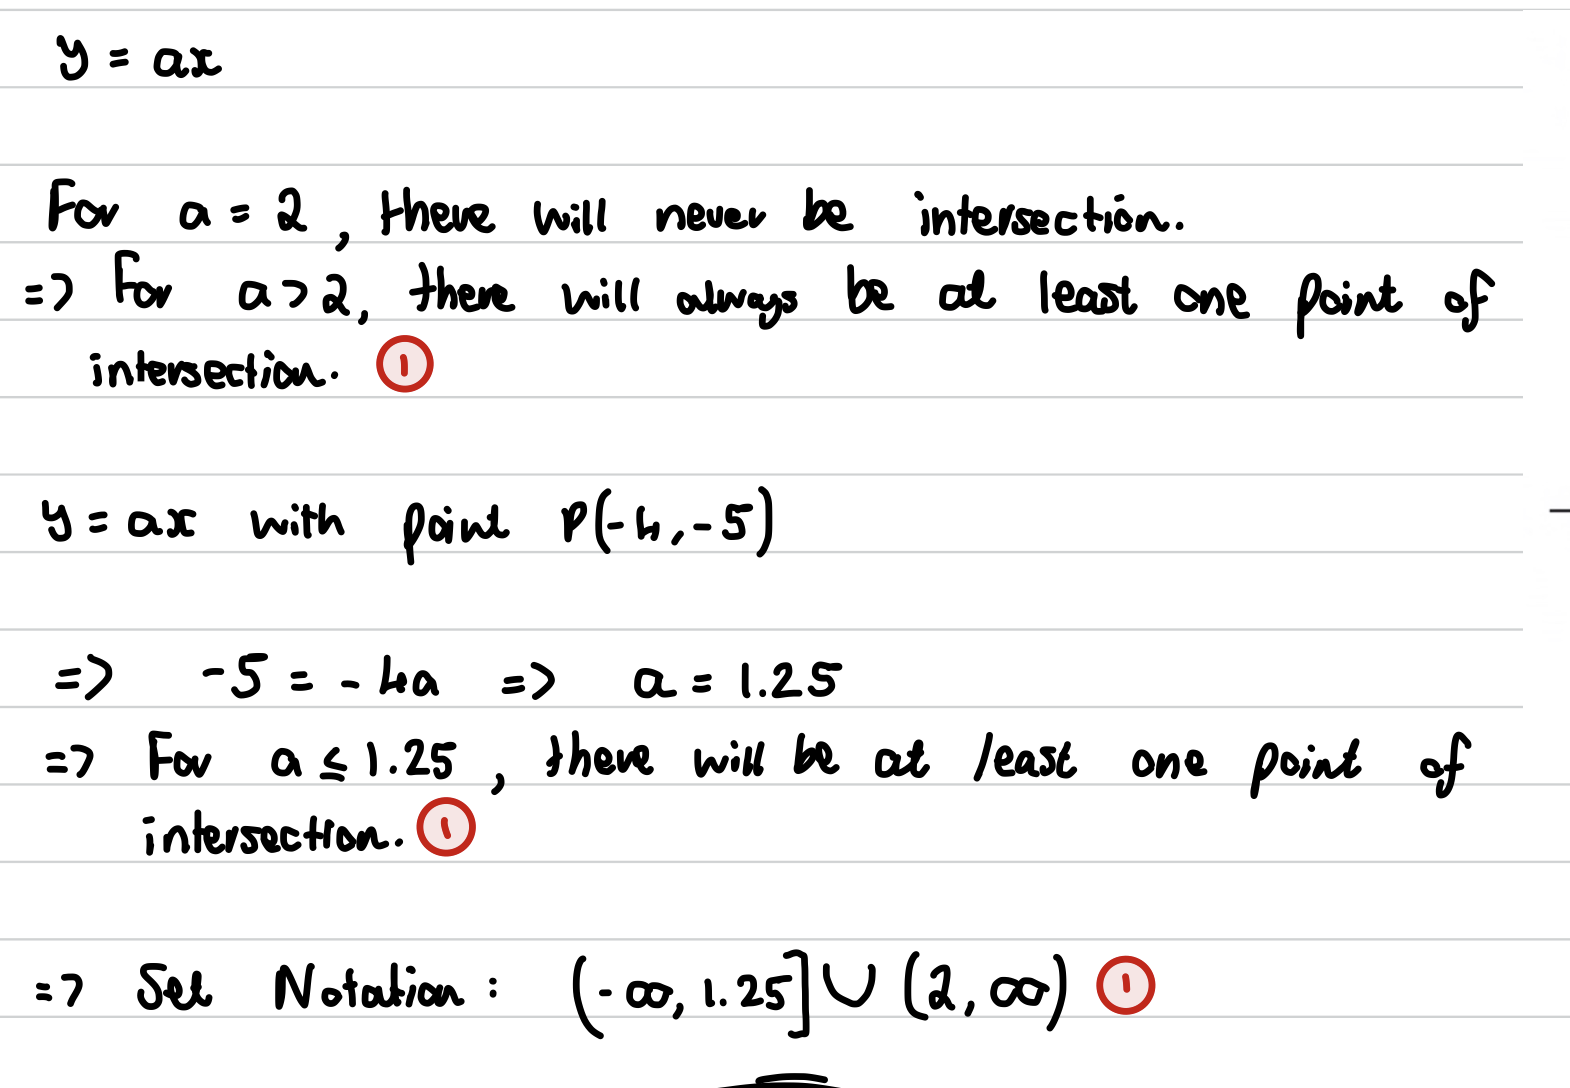 y = ax
For a = 2, there will never be intersection.
=> For a > 2, there will always be at least one point of
intersection. 1
y = ax with point P(-4, -5)
=> -5 = -4a => a = 1.25
=> For a ≤ 1.25, there will be at least one point of
intersection. 1
=> Set Notation : (-∞, 1.25] ∪ (2, ∞) 1